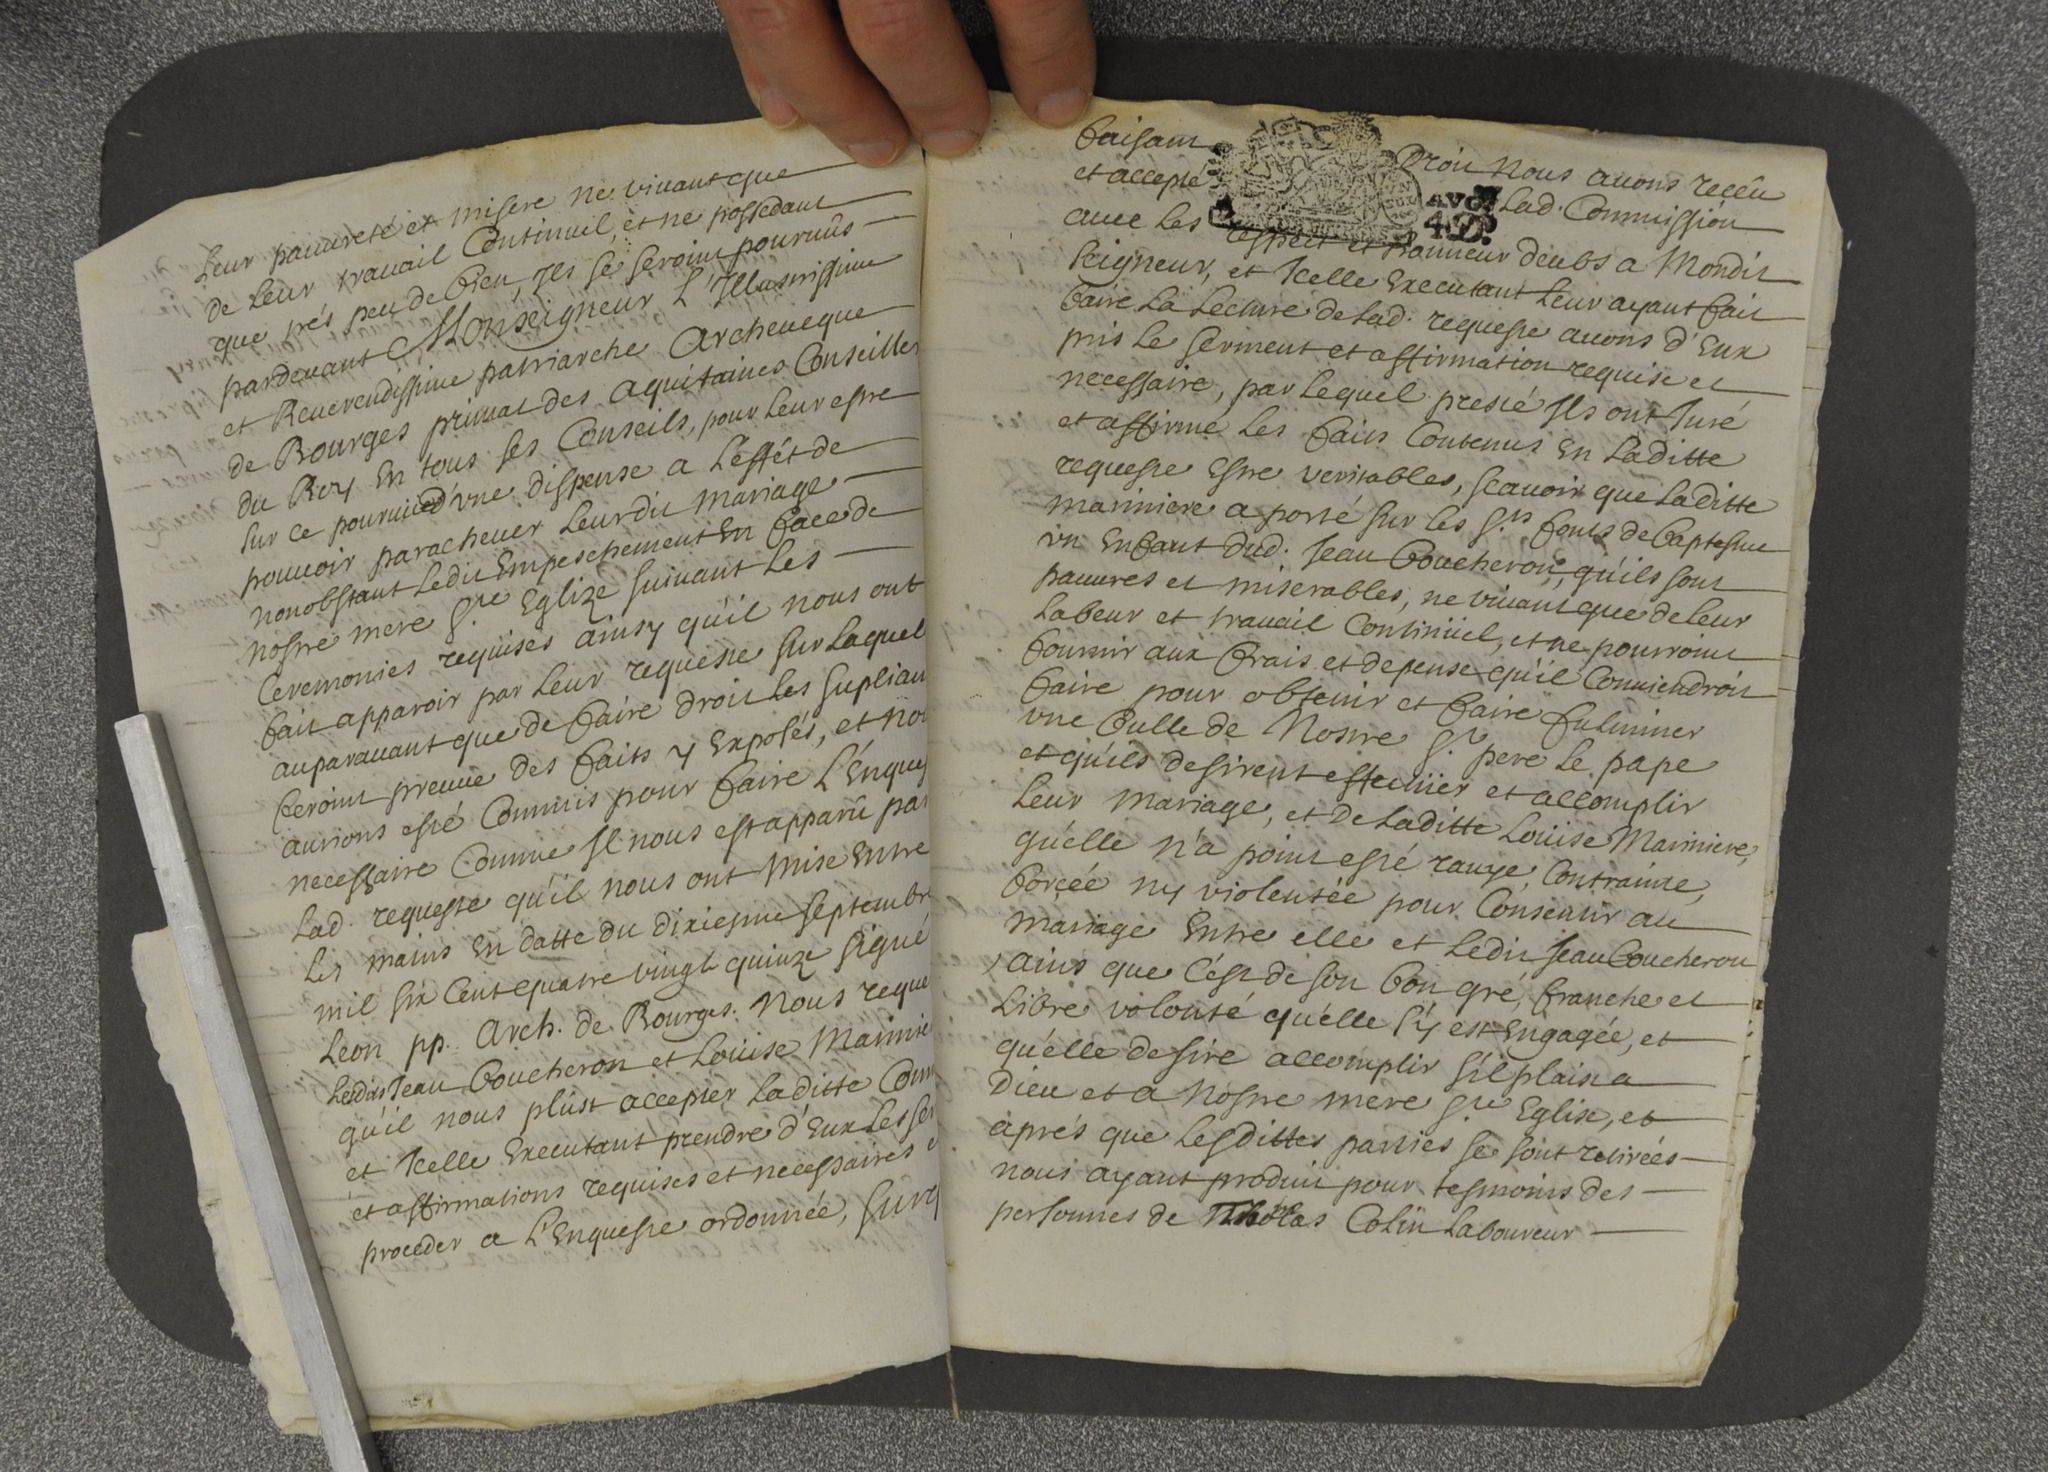 Leur pauureté et misere ne viuant que
de Leur trauail Continuel, et ne possedant
que trés peu de bien, Ils se seroint pouruûs
pardeuant Monseigneur L'Illustrissime
et Reuerendissime patriarche Archeueque
de Bourges primat des aquitaines Conseiller
du Roy En tous ses Conseils, pour Leur estre
sur ce pourueu d'vne dispense a L'effét de
pouuoir paracheuer Leurdit mariage
nonobstant Ledit Empeschement En face de
nostre mere Ste Eglize suiuant Les
Ceremonies requises ainsy qu'il nous ont
fait apparoir par Leur requeste sur Laquel
auparauant que de faire droit Les suplian
feroint preuue des faits y Exposés, et no
aurions esté Commis pour faire L'Enques
necessaire Comme Il nous est apparû par
Lad. requeste qu'il nous ont mise Entre
Les mains En datte du dixiesme septembre
mil six Cent quatre vingt quinze signé
Leon pp. Arch. de Bourges. Nous reque
Lesdits Jean Boucheron et Louise Mariniere
qu'il nous plûst accepter Laditte Com
et Icelle Executant prendre d'Eux Les ser
et affirmations requises et necessaires
proceder a L'Enqueste ordonnée, surq
faisant Droit Nous auons receu
et accepté Lad. Commission
AVG
4 D
auec Les respect et honneur deubs a Mondit
seigneur, et Icelle Executant Leur ayant fait
faire La Lecture de Lad. requeste auons d'Eux
pris Le serment et affirmation requise et
necessaire, par Lequel presté Ils ont Iuré
et affirmé Les faits Contenus En Laditte
requeste Estre veritables, scauoir que Laditte
mariniere a porté sur les Sts fonts de baptesme
vn Enfant dud. Jean Boucheron, qu'ils sont
pauures et miserables, ne viuant que de Leur
Labeur et trauail Continüel, et ne pourroint
fournir aux frais et depense qu'il Conuiendroit
faire pour obtenir et faire fulminer
vne bulle de Nostre St pere Le pape
et qu'ils desirent effectüer et accomplir
Leur mariage, et De Laditte Loüise Mariniere,
qu'elle n'a point esté rauye, Contrainte,
forçée ny violentée pour Consentir au
mariage Entre elle et Ledit Jean Boucheron
ains que C'ést de son bon gré, franche et
Libre volonté qu'elle s'y est Engagée, et
qu'elle desire accomplir s'il plaist a
Dieu et a Nostre mere Ste Eglise, et
aprés que Lesdittes parties se sont retirées
nous ayant produit pour tesmoins des
personnes de Colin Laboureur